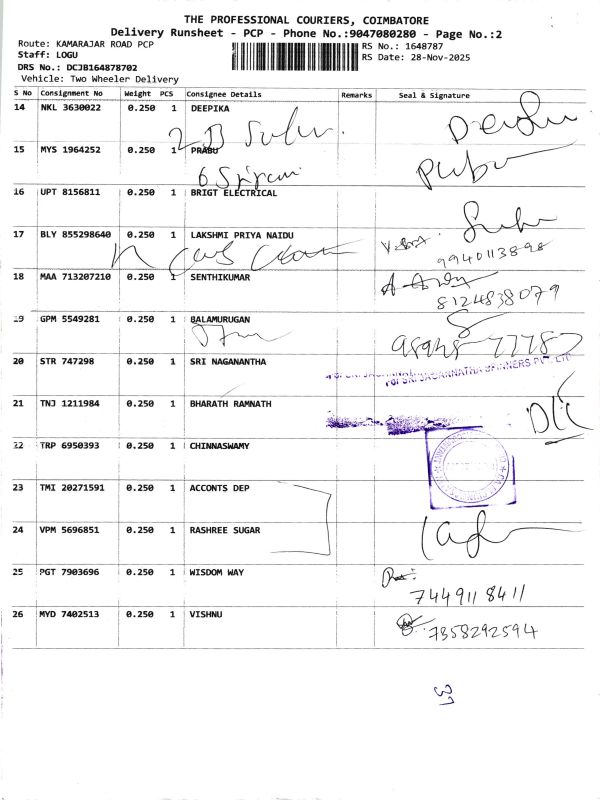 THE PROFESSIONAL COURIERS, COIMBATORE
Delivery Runsheet - PCP - Phone No.:9047080280 - Page No.:2
Route: KAMARAJAR ROAD PCP
RS No.: 1648787
Staff: LOGU
RS Date: 28-Nov-2025
DRS No.: DCJB164878702
Vehicle: Two Wheeler Delivery
S No Consignment No Weight PCS Consignee Details Remarks Seal & Signature
14 NKL 3630022 0.250 1 DEEPIKA
15 MYS 1964252 0.250 1 PRABU
16 UPT 8156811 0.250 1 BRIGT ELECTRICAL
17 BLY 855298640 0.250 1 LAKSHMI PRIYA NAIDU
9940113898
18 MAA 713207210 0.250 1 SENTHIKUMAR
8124838079
19 GPM 5549281 0.250 1 BALAMURUGAN
20 STR 747298 0.250 1 SRI NAGANANTHA
21 TNJ 1211984 0.250 1 BHARATH RAMNATH
22 TRP 6950393 0.250 1 CHINNASWAMY
23 TMI 20271591 0.250 1 ACCONTS DEP
24 VPM 5696851 0.250 1 RASHREE SUGAR
25 PGT 7903696 0.250 1 WISDOM WAY
7449118411
26 MYD 7402513 0.250 1 VISHNU
7358292594